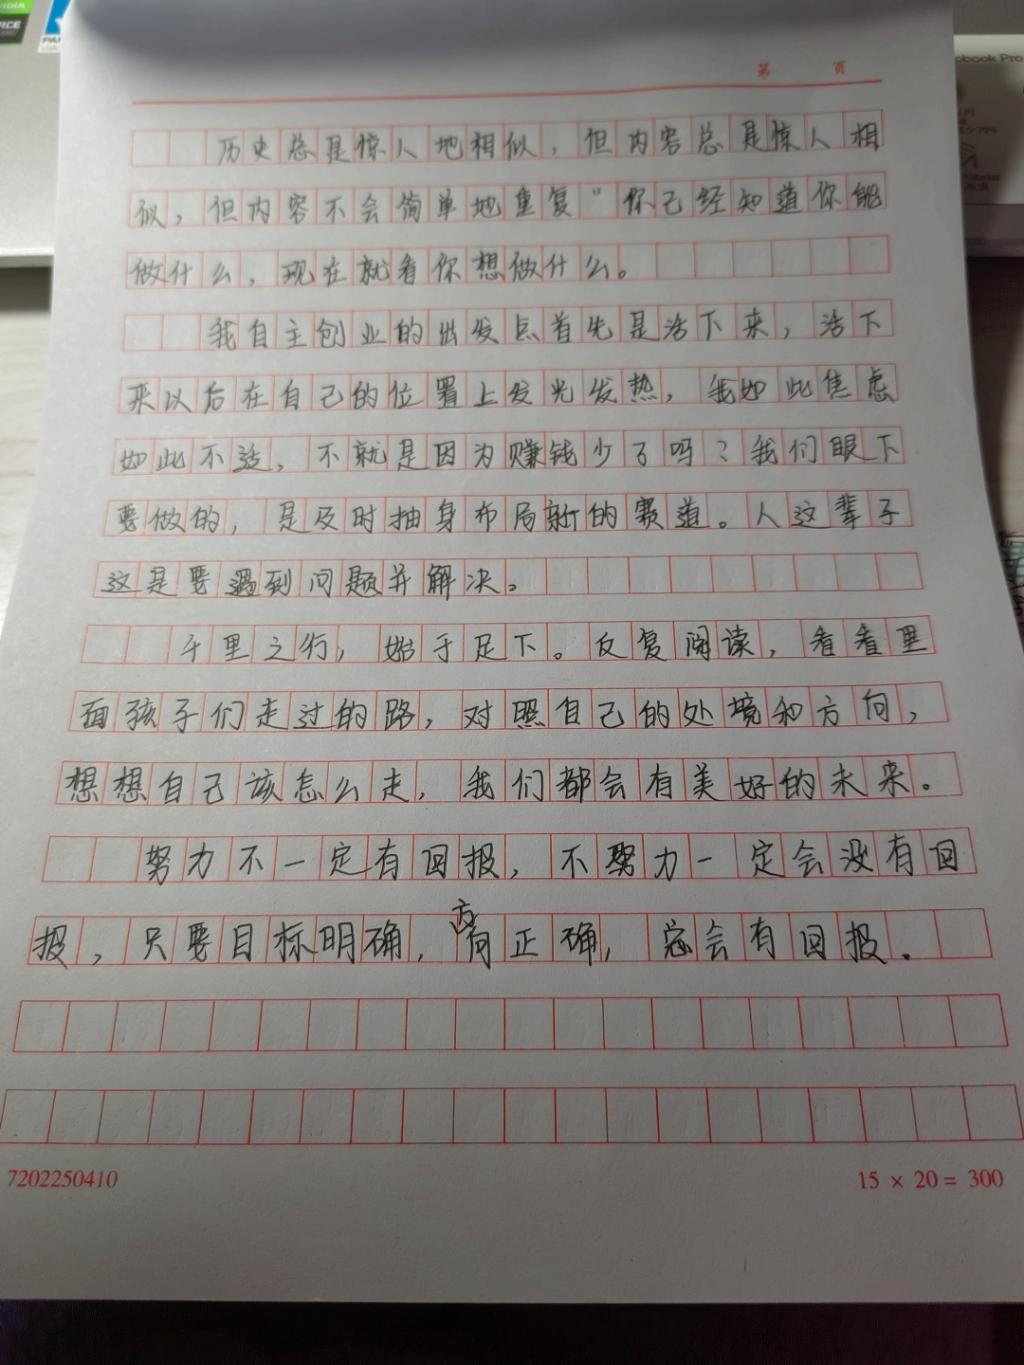 第 页
obook Pro
历史总是惊人地相似，但内容总是惊人相
似，但内容不会简单地重复"你己经知道你能
做什么，现在就看你想做什么。
我自主创业的出发点首先是活下来，活下
来以后在自己的位置上发光发热，我如此焦虑
如此不适，不就是因为赚钱少了吗？我们眼下
要做的，是及时抽身布局新的赛道。人这辈子
这是要遇到问题并解决。
千里之行，始于足下。反复阅读，看看里
面孩子们走过的路，对照自己的处境和方向，
想想自己该怎么走，我们都会有美好的未来。
努力不一定有回报，不努力一定会没有回
报，只要目标明确，方向正确，总会有回报．
7202250410
15 × 20 = 300